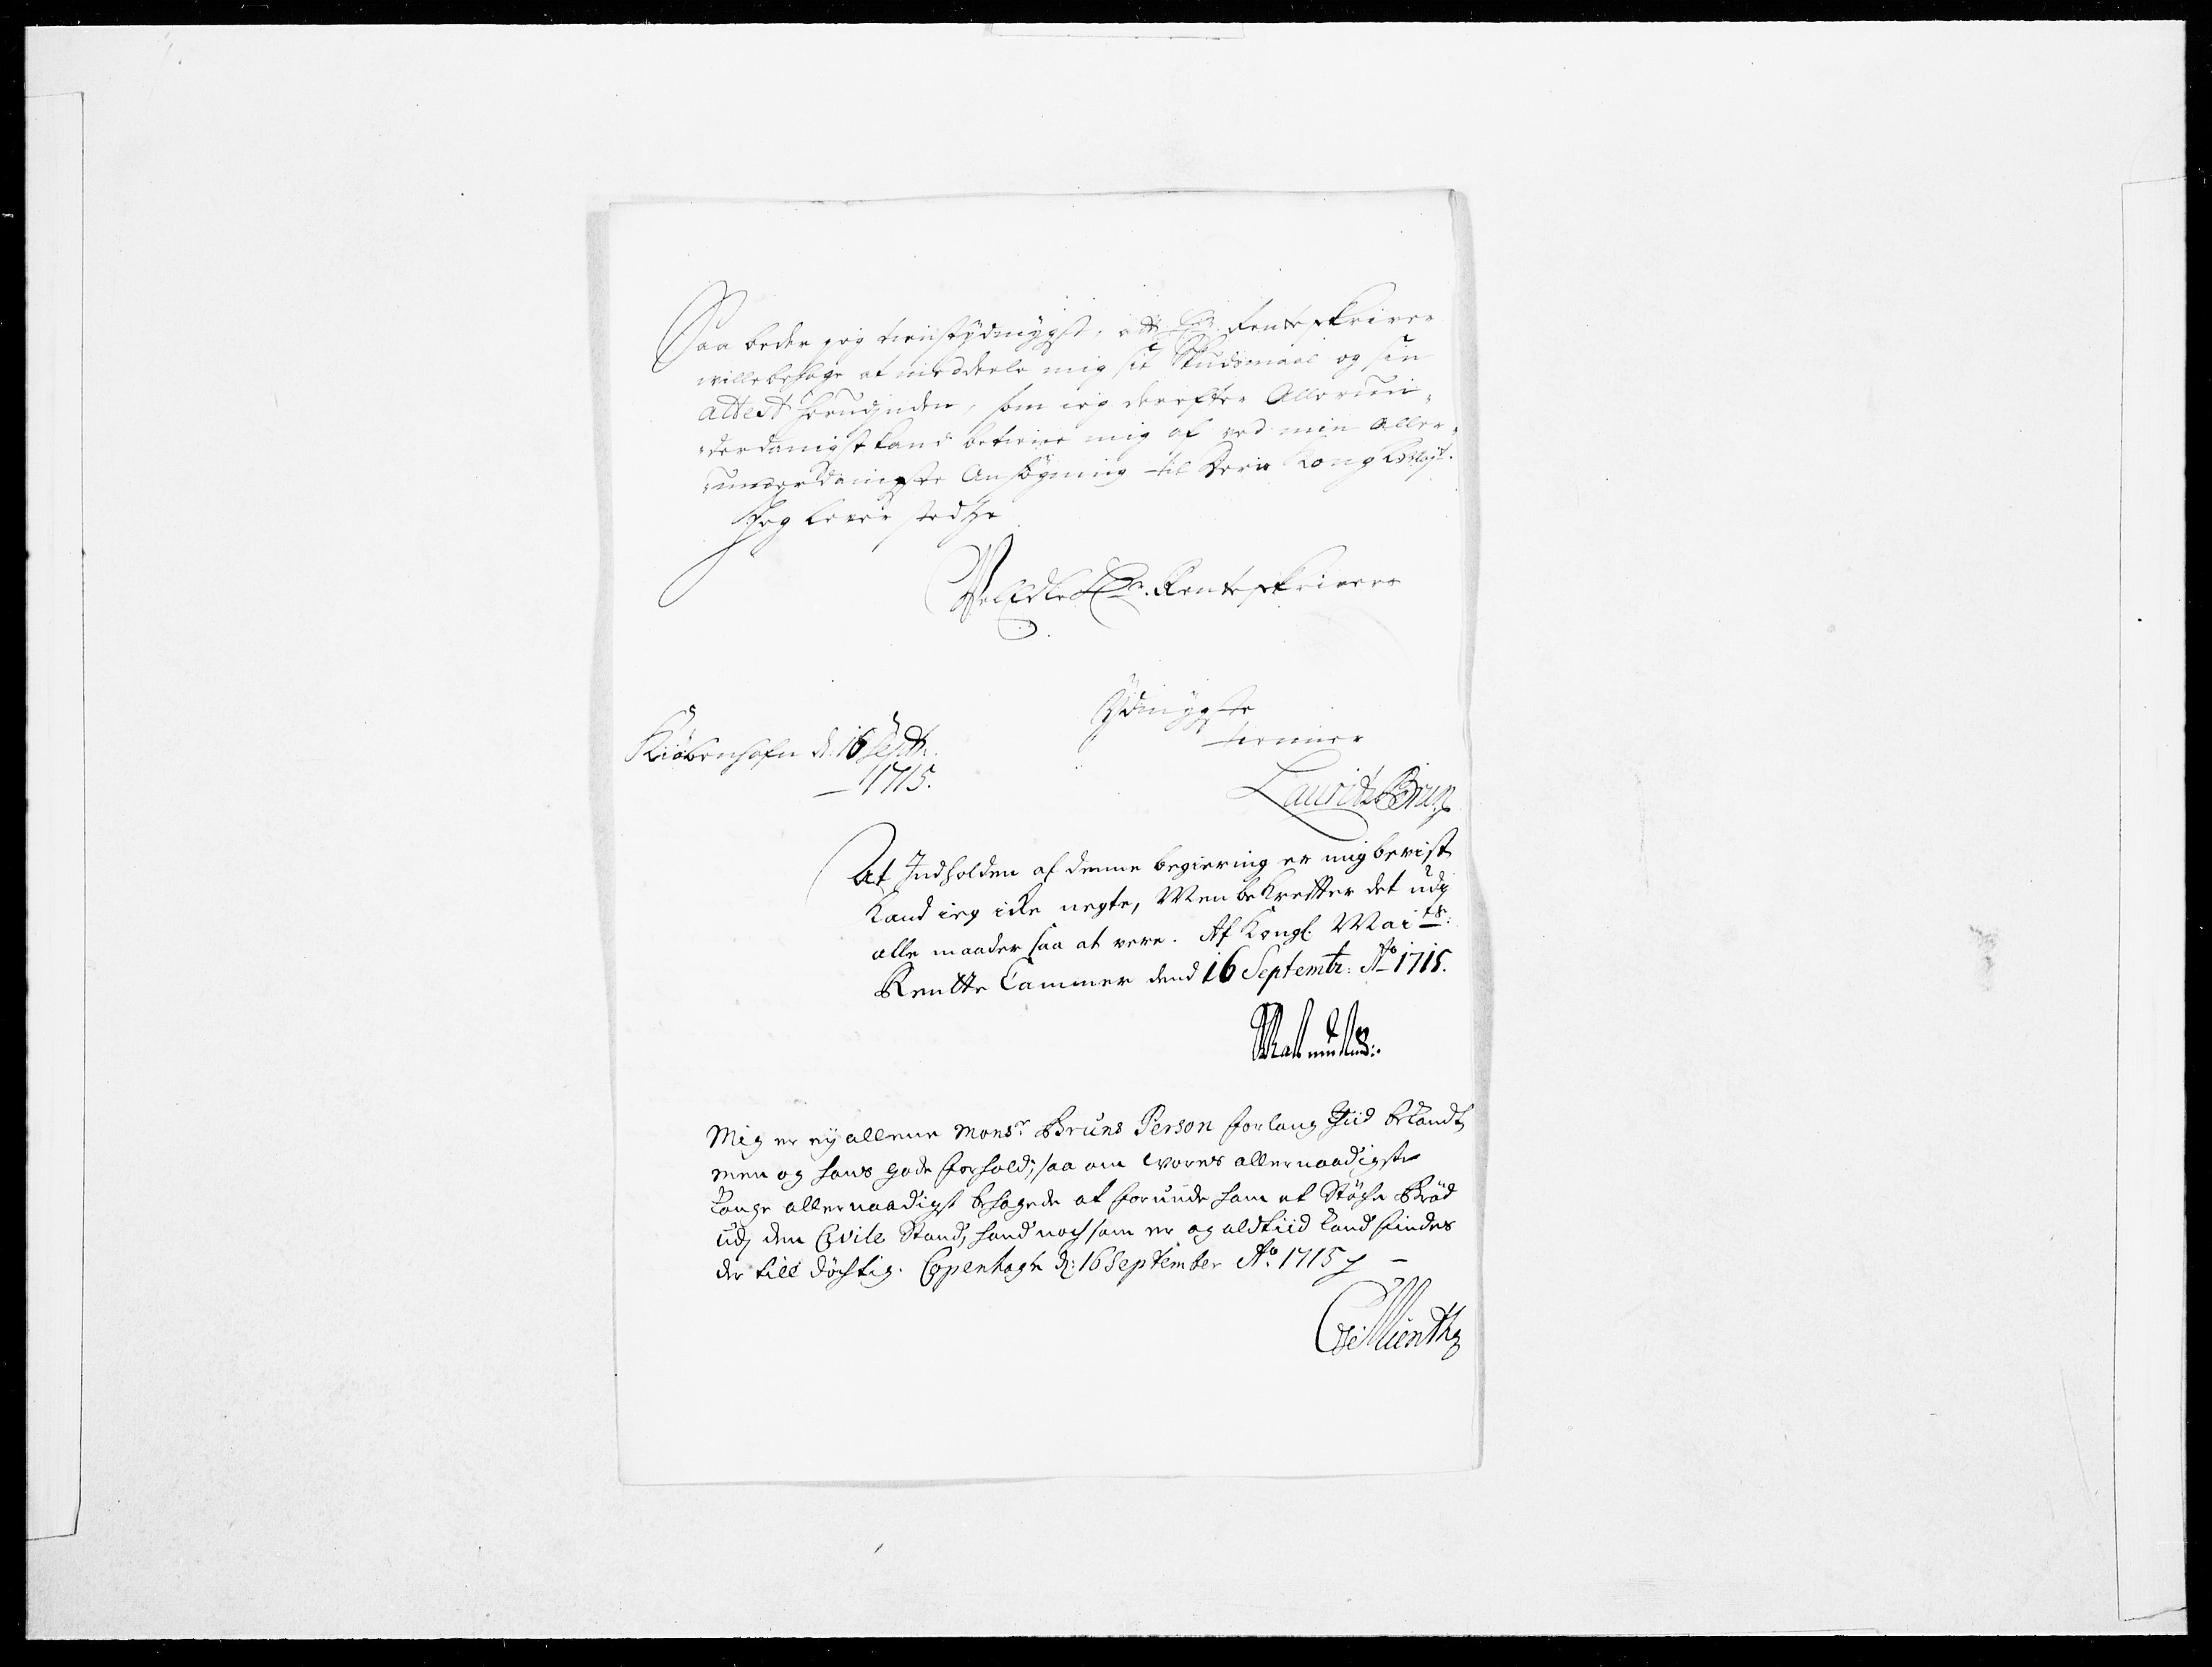 Saa beder jeg tienstydmygst, at Hr. Renteskriver
wille behage at meddeele mig sit Skudsmaal og sin
attest herunden, som ieg derefter Allerun-
derdanigst kand betiene mig af ved min Aller-
underdanigste Ansögning til Deris Kongl. Mayt.
Jeg lever stedtze
Vel Edle Hr. Renteskrivers
Ydmygste
tienner
Kiöbenhafn d. 16 Septr.
1715.
Lauritz Brun
At Indholden af denne begiering er mig bevist
kand ieg icke negte, Men bekrefter det udj
alle maader saa at vere. Af Kongl. Maits:
Rentte Cammer dend 16 Septembr: Ao 1715.
Mig er ey allene Monsr Bruns Person for lang Tiid bekandt
men og hans gode forhold; saa om wores allernaadigste
Konge allernaadigst behagede at forunde ham et Støche Brød
udj den Civile Stand, hand noch som er og aldtiid kand findes
der till döchtig. Copenhagn d: 16 September Ao. 1715
Munthe